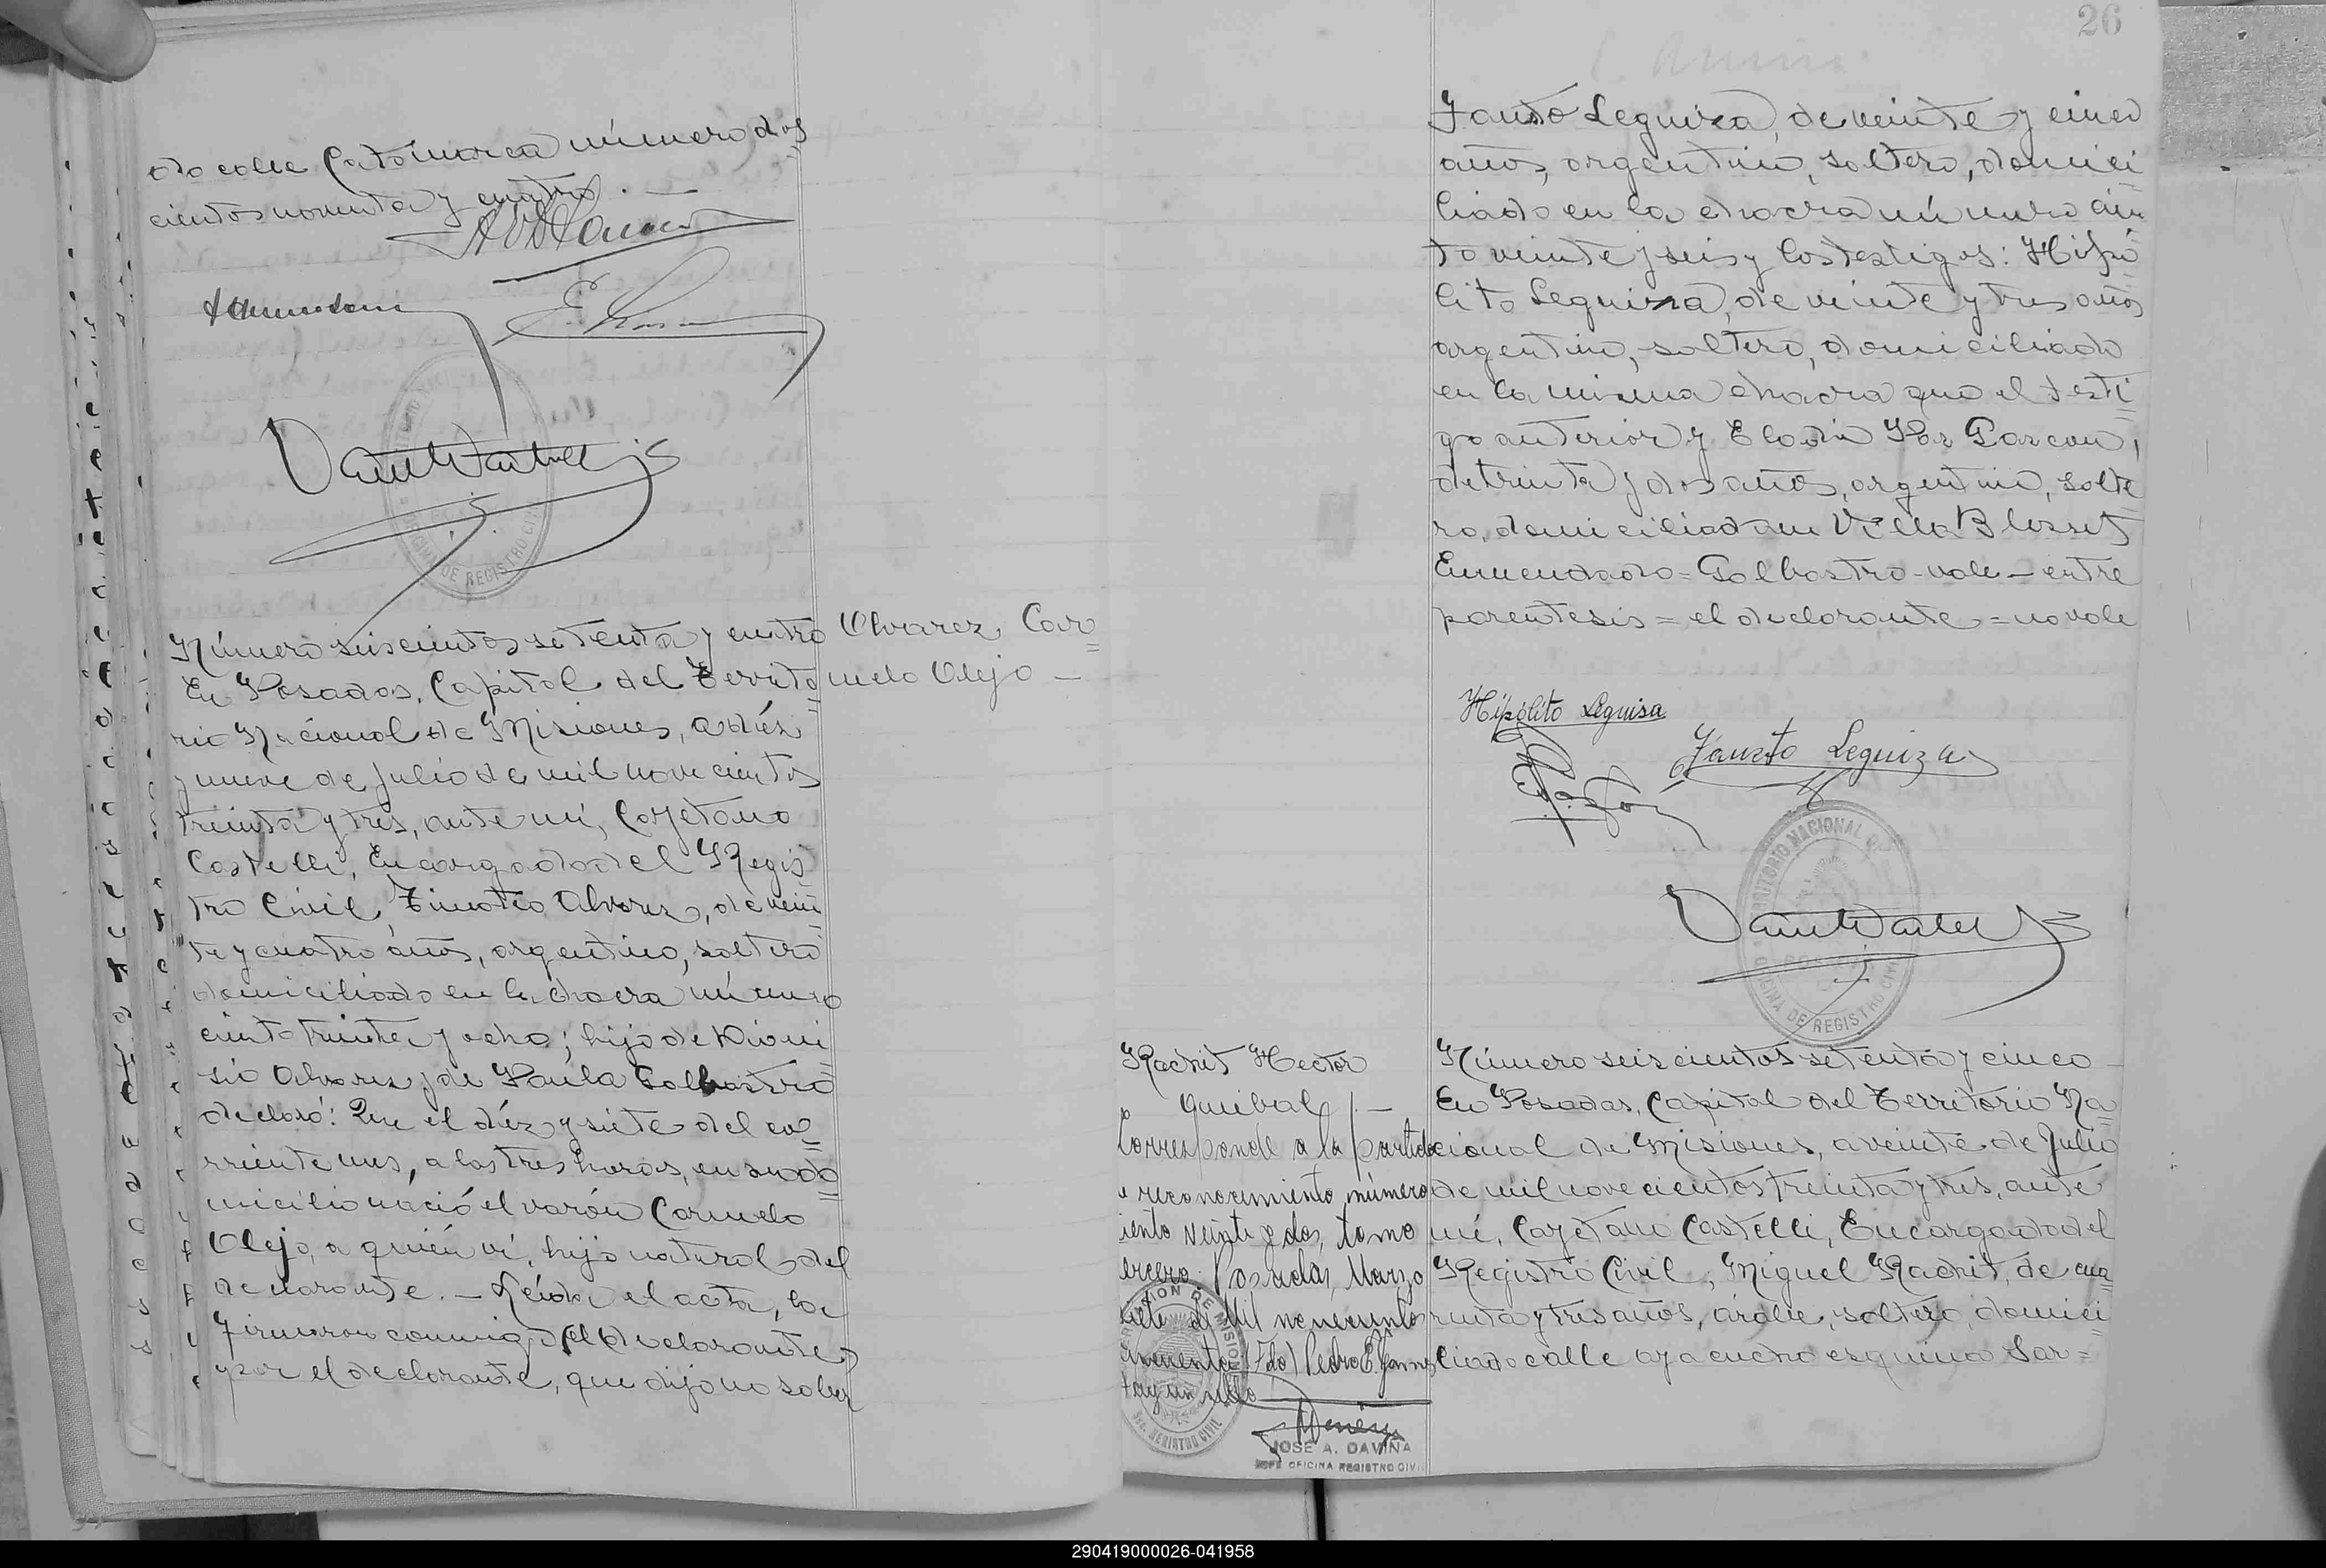 do calle Catamarca número dos
cientos noventa y cuatro. —
Número seiscientos setenta y cuatro
En Posadas, Capital del Territo
rio Nacional de Misiones, a diéz
y nueve de Julio de mil novecientos
treinta y tres, ante mí, Cayetano
Castelli, Encargado del Regis
tro Civil, Timoteo Alvarez, de vein
te y cuatro años, argentino, soltero
domiciliado en la chacra número
ciento treinta y ocho; hijo de Dioni
sio Alvarez y de Paula Galbastro
declaró: Que el diéz y siete del co=
rriente mes, a las tres horas, en su do
micilio nació el varón Carmelo
Alejo, a quién ví, hijo natural del
declarante. — Leída el acta, la
firmaron conmigo (el declarante)
y por el declarante, que dijo no saber
Alvarez, Car=
melo Alejo —
26
Fausto Leguiza, de veinte y cinco
años, argentino, soltero, domici
liado en la chacra número cien
to veinte y seis y los testigos: Hipó
lito Leguiza, de veinte y tres años
argentino, soltero, domiciliado
en la misma chacra que el testi
go anterior y Eladio Garcon,
de treinta y dos años, argentino, solte
ro, domiciliado en Villa Blosset
Enmendado = Galbastro - vale — entre
parentesis = el declarante = no vale
Hipólito Leguisa
Fausto Leguiza
TERRITORIO NACIONAL DE
POSADAS
OFICINA DE REGISTRO CIVIL
Rachit Hector
Anibal —
Corresponde a la partida
e reconocimiento número
iento veinte y dos, tomo
ercero. Posadas, Marzo
siete de Mil novecientos
cincuenta (Fdo) Pedro E.
Hay un sello
JOSE A. DAVIÑA
JEFE OFICINA REGISTRO CIVIL
Número seiscientos setenta y cinco
En Posadas, Capital del Territorio Na
cional de Misiones, a veinte de Julio
de mil novecientos treinta y tres, ante
mí, Cayetano Castelli, Encargado del
Registro Civil, Miguel Rachit, de cua
renta y tres años, arabe, soltero, domici
liado calle ayacucho esquina Sar=
290419000026-041958